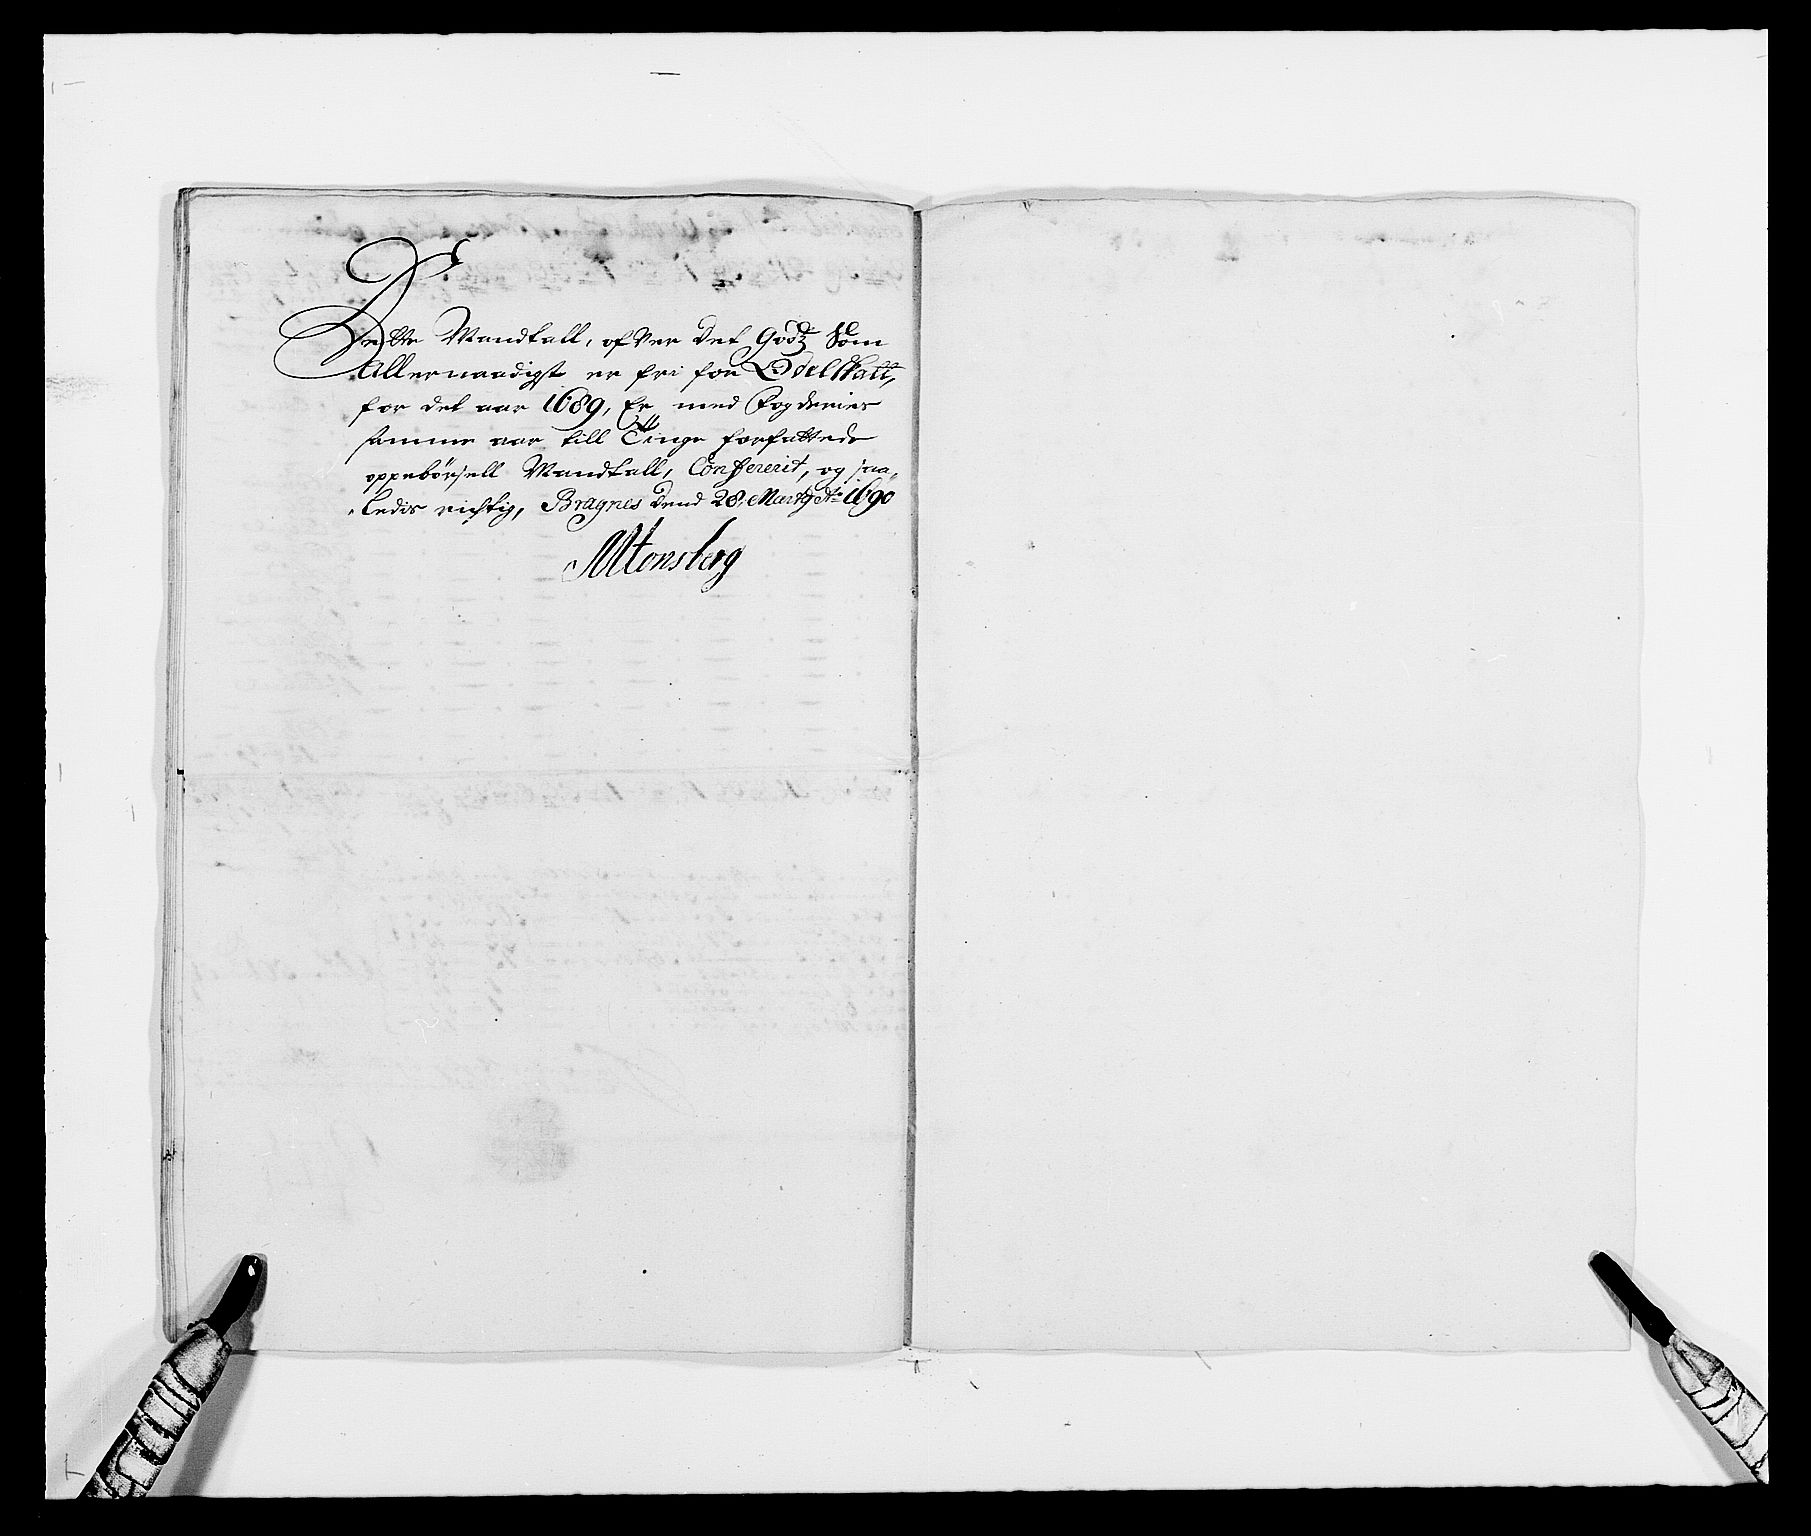 Dette Mandtall, ofver det godtz Som
Allernaadigst er fri for Odelskatt,
for det aar 1689, Er med fogderies
samme aar till Tinge forfattede
oppebørsell Mandtall, Confererit, og saa-
ledis richtig, Bragnes dend 28. Marty Ao 1690
MTonsberg